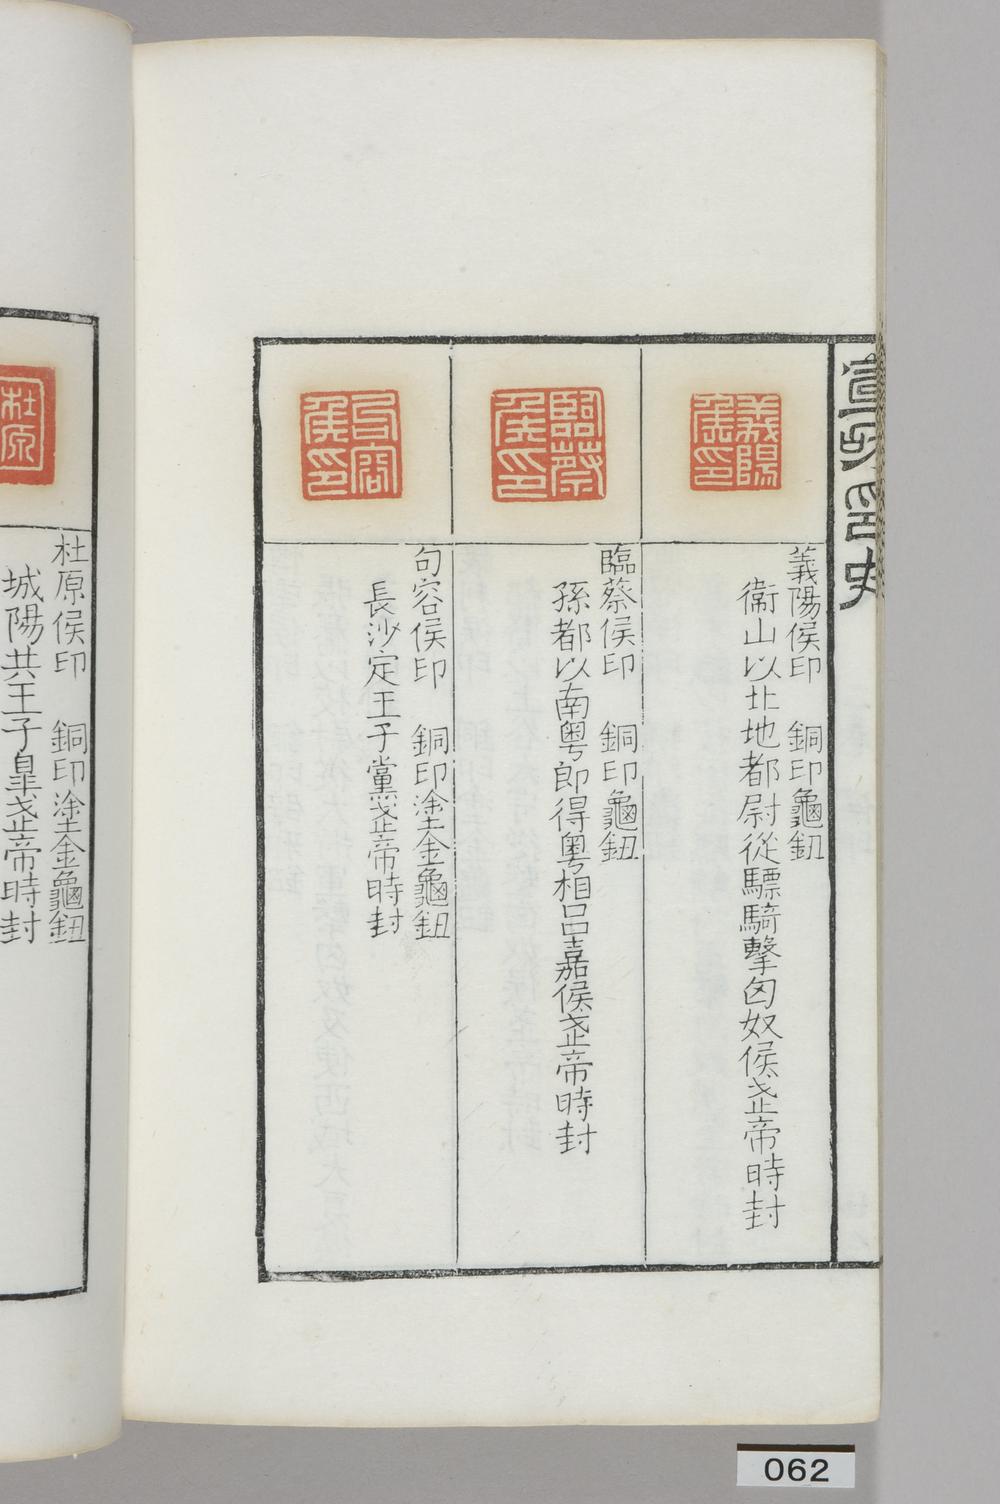 宣和印史
義陽
侯印
義陽侯印　銅印龜鈕
衞山以北地都尉從驃騎擊匈奴侯武帝時封
臨蔡
侯印
臨蔡侯印　銅印龜鈕
孫都以南粵郎得粵相呂嘉侯武帝時封
句容
侯印
句容侯印　銅印塗金龜鈕
長沙定王子黨武帝時封
杜原
杜原侯印　銅印塗金龜鈕
城陽共王子皋武帝時封
062